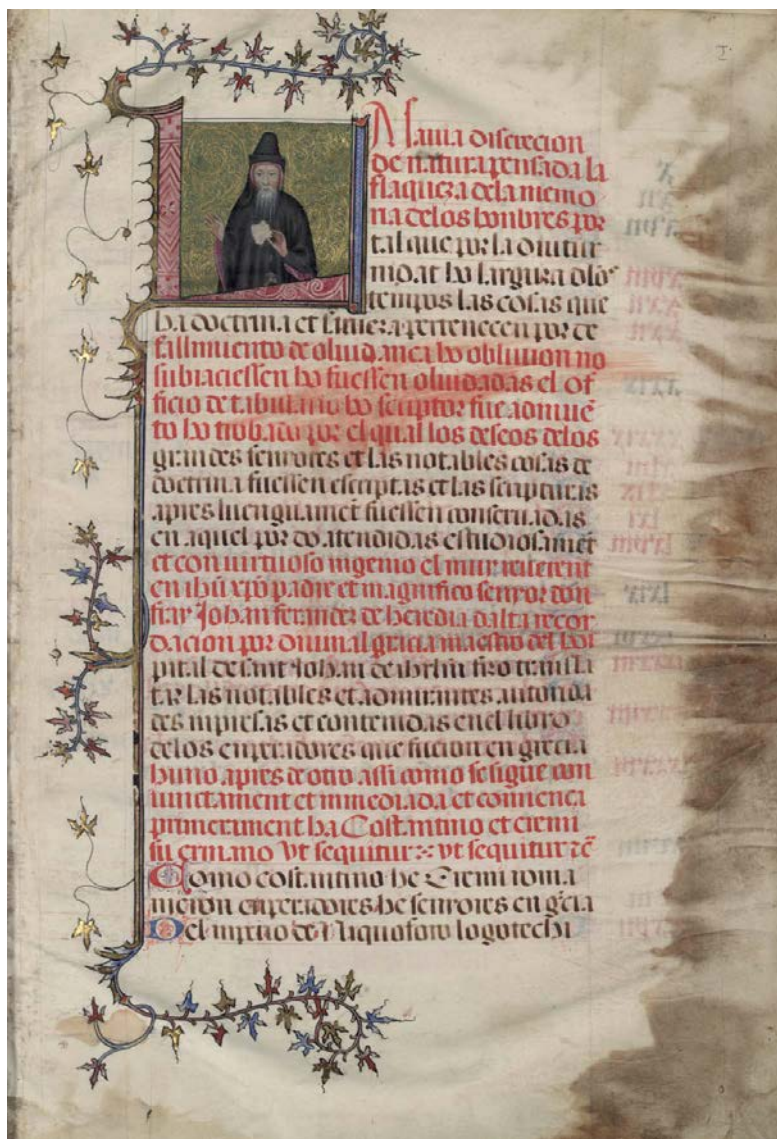 I
La
discrecion
de natura pensada la
flaqueza dela memo
ria delos honbres por
tal que por la diutur
nidat ho largura dlos
tempos las cosas que
ha doctrina et sciencia pertenecen por de
fallimiento de oluidança ho obliuion no
subiaciessen ho fuessen oluidadas el of
ficio de tabulario ho scriptor fue admue
to ho trobado por el qual los deseos delos
grandes senyores et las notables cosas de
doctrina fuessen escriptas et las scripturas
apres luenguament fuessen conseruadas
en aquel por do atendidas estudiosament
et con virtuoso ingenio el muy reuerent
en ihu xpo padre et magnifico senyor don
fray Johan ferrandez de heredia dalta recor
dacion por diuinal gracia maestro del hos
pital de sant Johan de ihrlm fizo transla
tar las notables et admirantes autorida
des inpresas et contenidas en el libro
delos enperadores que fueron en grecia
huno apres de otro assi como se sigue con
iunctament et inmediada et comiença
primerament ha Costantino et ciremi
su ermano Vt sequitur vt sequitur
Como costantino he Ciremi toma
meron enperadores he senyores en gcia
Del inperio de Niquoforo logotechi